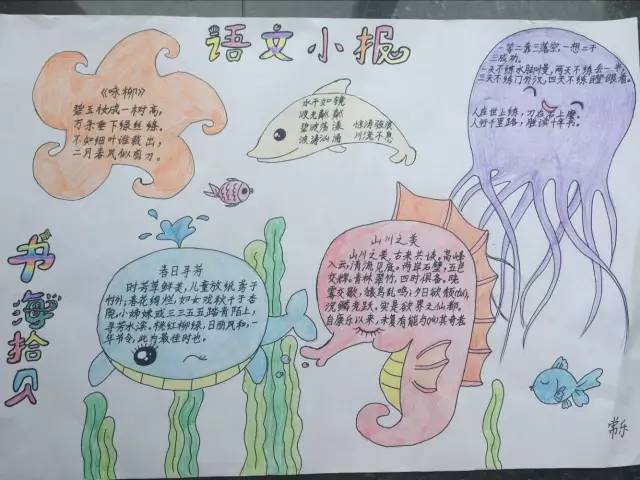 语文小报
书海拾贝
《咏柳》
碧玉妆成一树高,
万条垂下绿丝绦。
不知细叶谁裁出,
二月春风似剪刀。
水平如镜
波光粼粼
碧波荡漾 惊涛骇浪
波涛汹涌 川流不息
一等二靠三落空,一想二干
三成功。
一天不练手脚慢,两天不练丢一半,
三天不练门外汉,四天不练瞪眼看。
人在世上练,刀在石上磨。
人行千里路,胜读十年书。
春日寻芳
时芳草鲜美,儿童放纸鸢于
村外;春花绚烂,
小姊妹或三三五五踏青陌上,
寻芳水滨。桃红柳绿,日丽风和,一
年节令,此为最佳时也。
山川之美
山川之美,古来共谈。高峰
入云,清流见底。两岸石壁,五色
交辉。青林翠竹,四时俱备。晓
雾交歇,猿鸟乱鸣;夕日欲颓(tuí),
沉鳞竞跃,实是欲界之仙都。
自康乐以来,未复有能与(yù)其奇者
常乐